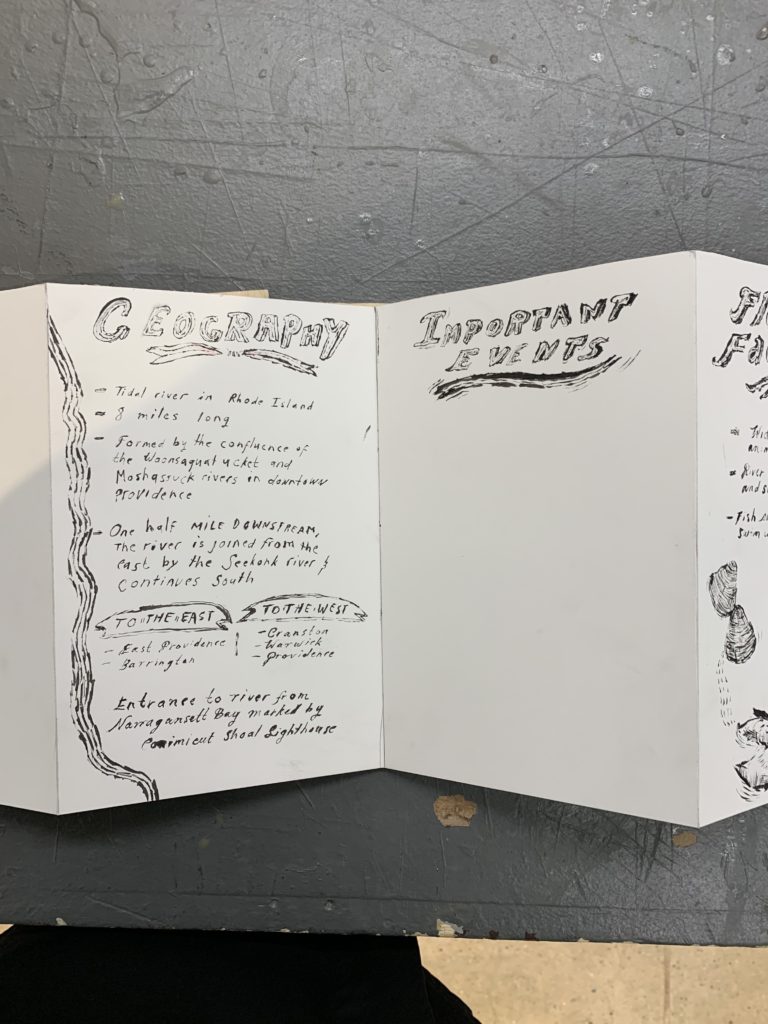 GEOGRAPHY
- Tidal river in Rhode Island
- 8 miles long
- Formed by the confluence of
the Woonsaquatucket and
Moshassuck rivers in downtown
providence
- One half MILE DOWNSTREAM,
The river is joined from the
east by the Seekonk river &
continues South
TO THE EAST
- East Providence
- Barrington
TO THE WEST
- Cranston
- Warwick
- Providence
Entrance to river from
Narragansett Bay marked by
Conimicut Shoal Lighthouse
IMPORTANT
EVENTS
- River
and
- Fish